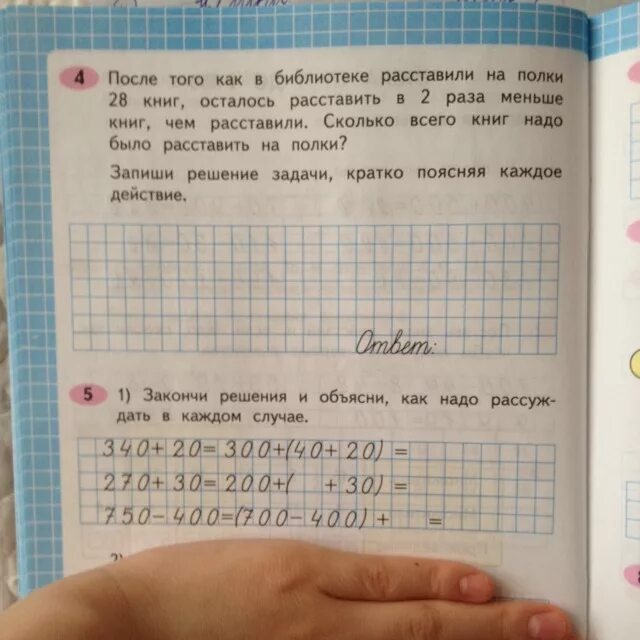 4 После того как в библиотеке расставили на полки
28 книг, осталось расставить в 2 раза меньше
книг, чем расставили. Сколько всего книг надо
было расставить на полки?
Запиши решение задачи, кратко поясняя каждое
действие.
Ответ:
5 1) Закончи решения и объясни, как надо рассуж-
дать в каждом случае.
340+20=300+(40+20) =
270+30=200+( +30) =
750-400=(700-400) + =